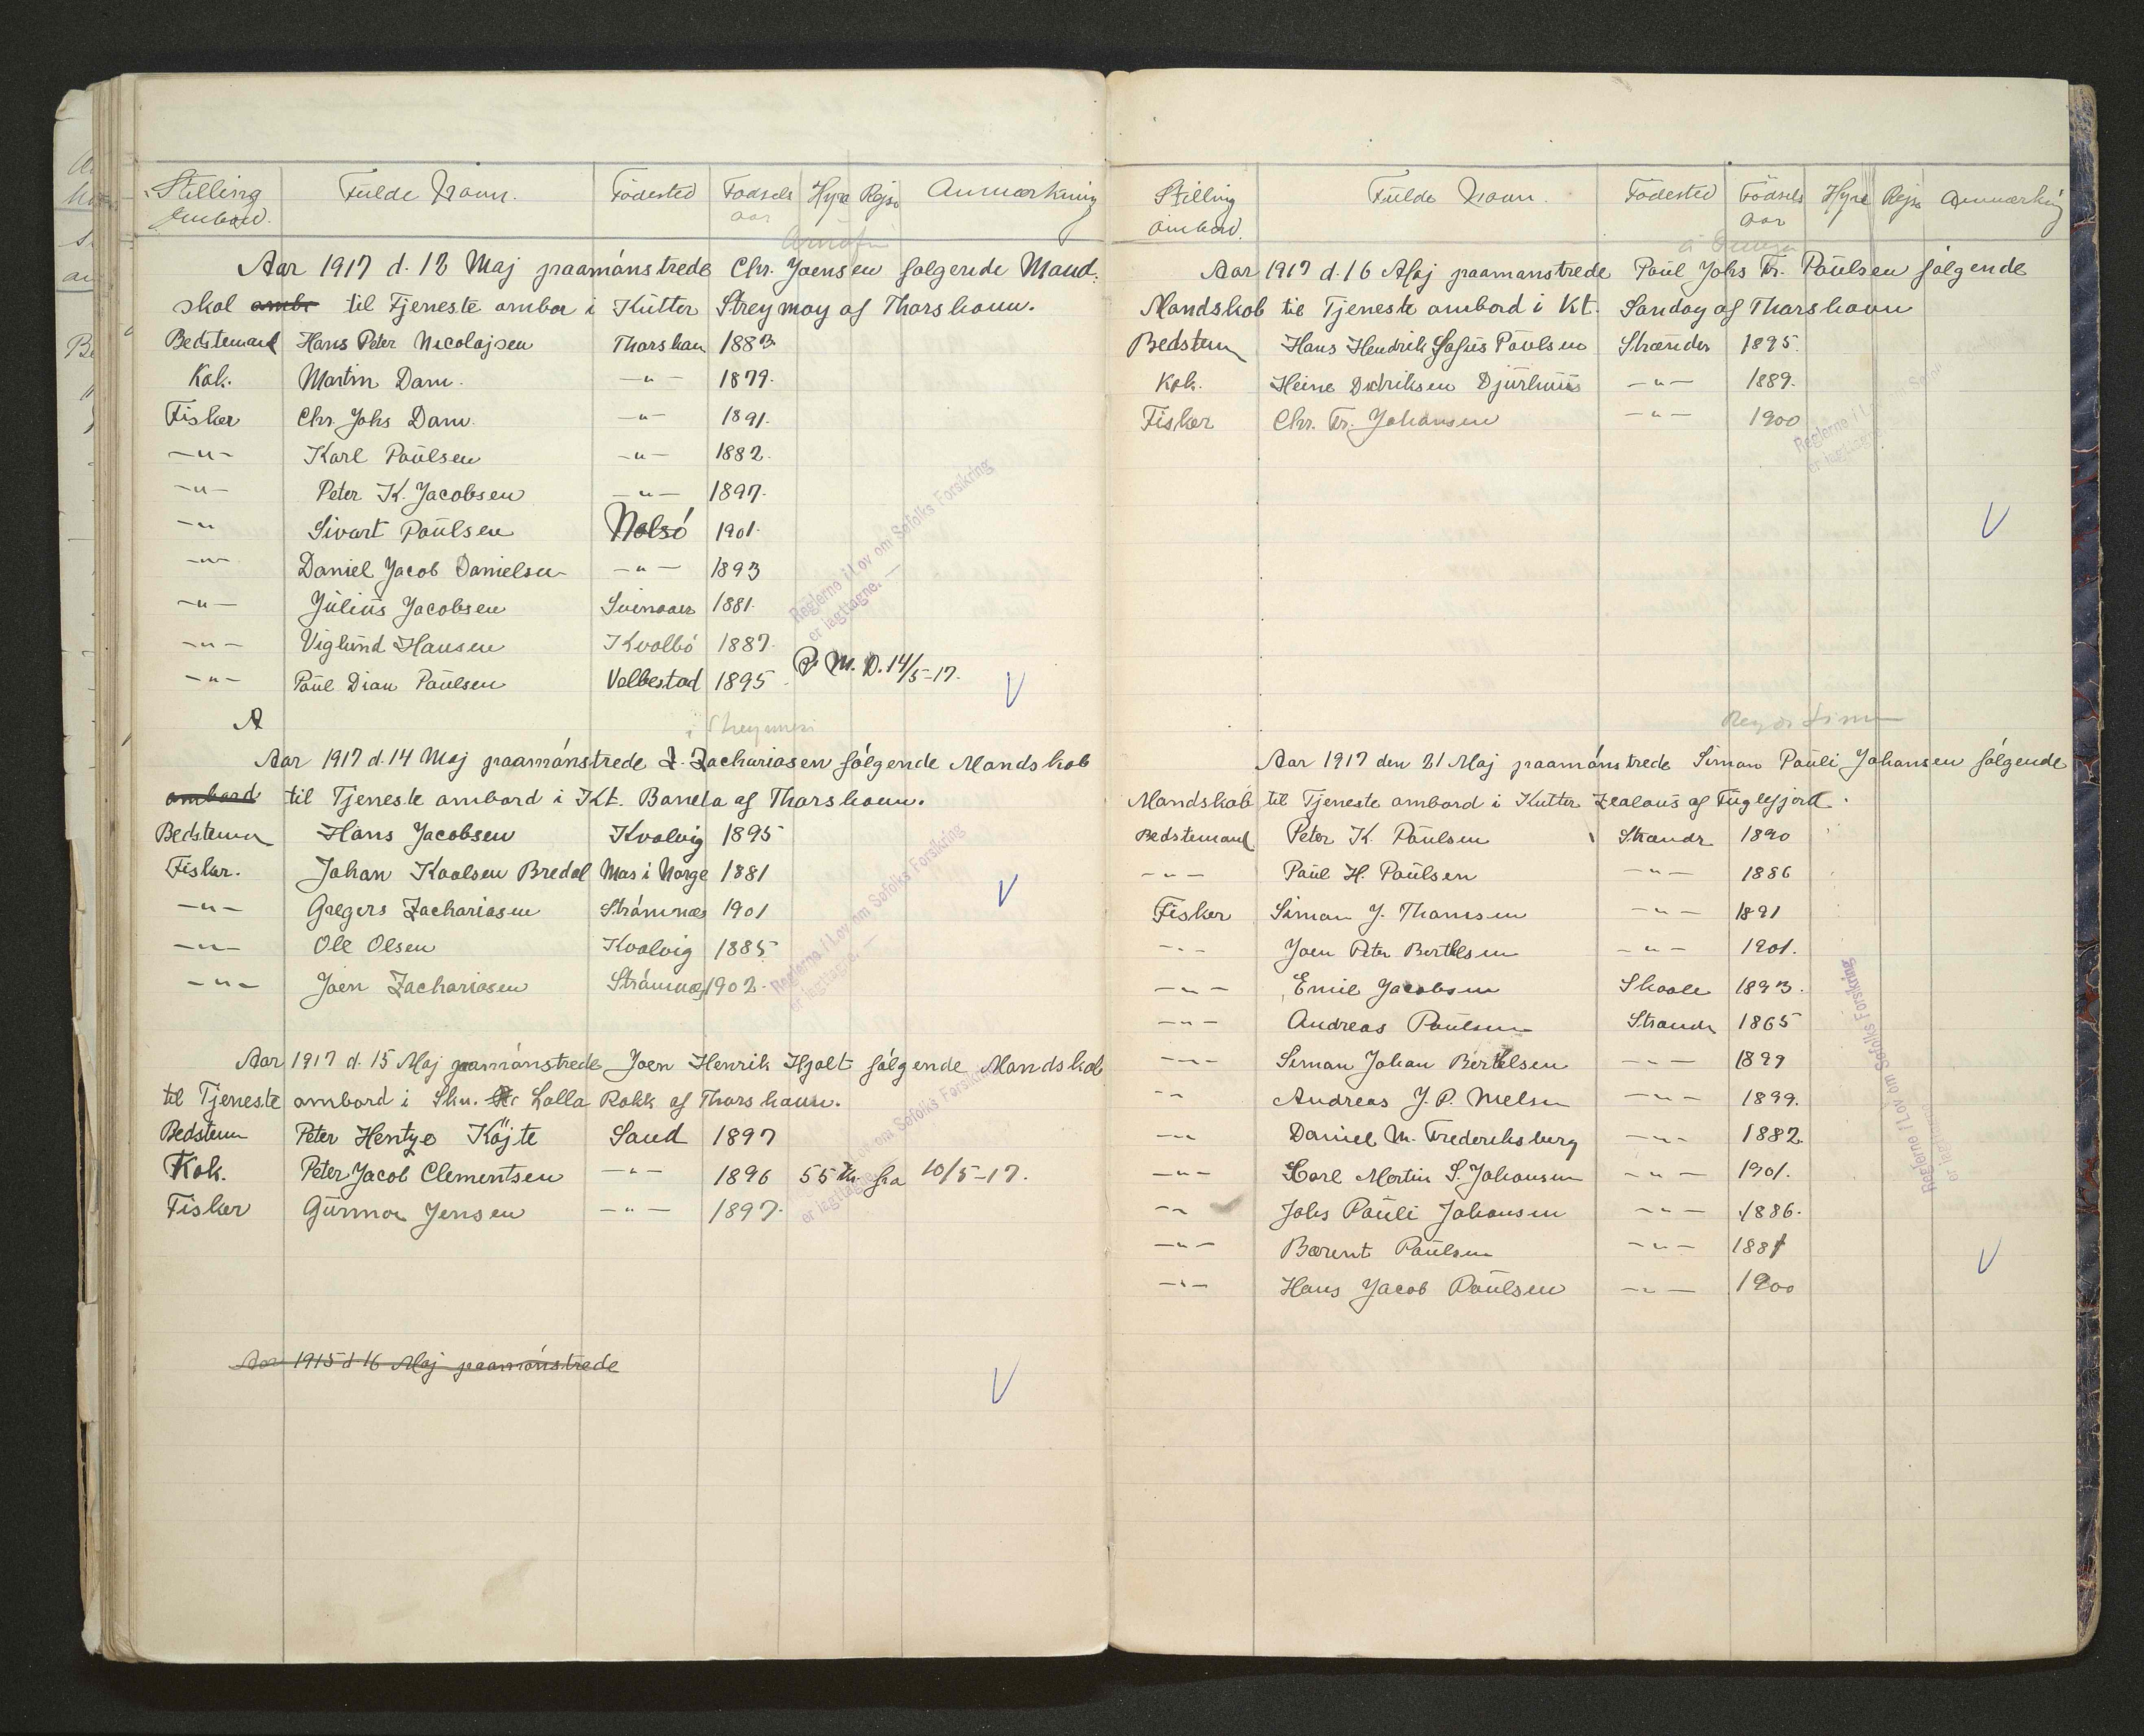 Stilling Fulde Navn. Födested Födsels Hyre Rejse Anmærkning
ombord. aar
Aar 1917 d. 12 Maj paamónstrede Chr. Joensen følgende Mand-
skab ombr til Tjeneste ombor i Kutter Streymoy af Thorshavn.
Bedstemand Hans Peter Nicolajsen Thorshavn 1883
Kok. Martin Dam. -"- 1879.
Fisker Chr. Johs Dam -"- 1891.
-"- Karl Poulsen -"- 1882.
-"- Peter K. Jacobsen -"- 1897.
-"- Sivart Poulsen Nolsó 1901.
-"- Daniel Jacob Danielsen -"- 1893
-"- Julius Jacobsen Svinaaer 1881.
-"- Viglund Hansen Kvalbó 1887.
-"- Poul Dian Poulsen Velbestad 1895
Reglerne i Lov om Søfolks Forsikring
er iagttagne. —
P. M. D. 14/5-17.
V
A
i Streymoy
Aar 1917 d. 14 Maj paamónstrede J. Zachariasen fólgende Mandskab
ombord til Tjeneste ombord i Kt. Baneta af Thorshavn.
Bedstem Hans Jacobsen Kvalvig 1895
Fisker. Johan Kaalsen Bredal Mas i Norge 1881
-"- Gregers Zachariasen Strómnæs 1901
-"- Ole Olsen Kvalvig 1885
-"- Joen Zachariasen Strómnæs 1902.
Reglerne i Lov om Søfolks Forsikring
er iagttagne. —
V
Aar 1917 d. 15 Maj paamónstrede Joen Henrik Hjalt fólgende Mandskab
til Tjeneste ombord i Skn. Lalla Rokk af Thorshavn.
Bedstem Peter Hentze Köjte Sand 1897
Kok. Peter Jacob Clementsen -"- 1896 55 Kr fra 10/5-17.
Fisker Gunnar Jensen -"- 1897.
Lov om Søfolks Forsikring
er iagttagne
Aar 1915 d 16 Maj paamónstrede
V
Stilling Fulde Navn. Födested Födsels Hyre Rejse Anmærkning
ombord. aar
Aar 1917 d. 16 Maj paamonstrede Poul Johs Fr. Poulsen fólgende
Mandskab til Tjeneste ombord i Kt. Sandoy af Thorshavn
Bedstem Hans Hendrik Sofus Poulsen Strænder 1895.
Kok. Heine Didriksen Djurhuus -"- 1889.
Fisker Chr. Fr. Johansen -"- 1900
Reglerne i L
er iagttagne
V
Aar 1917 den 21 Maj paamónstrede Simon Pauli Johansen fólgende
Mandskab til Tjeneste ombord i Kutter Zealous af Fuglefjord.
Bedstemand Peter K. Poulsen Strandr 1890
-"- Poul H. Poulsen -"- 1886
Fisker Simon J. Thomsen -"- 1891
-"- Joen Peter Berthelsen -"- 1901.
-"- Emil Jacobsen Skaale 1893.
-"- Andreas Poulsen Strandr 1865
-"- Simon Johan Berthelsen -"- 1899
-"- Andreas J. P. Nielsen -"- 1899.
-"- Daniel M. Frederiksberg -"- 1882.
-"- Karl Martin S. Johansen -"- 1901.
-"- Johs Pauli Johansen -"- 1886.
-"- Barent Poulsen -"- 1881
-"- Hans Jacob Poulsen -"- 1900
Reglerne i Lov om Søfolks Forsikring
V